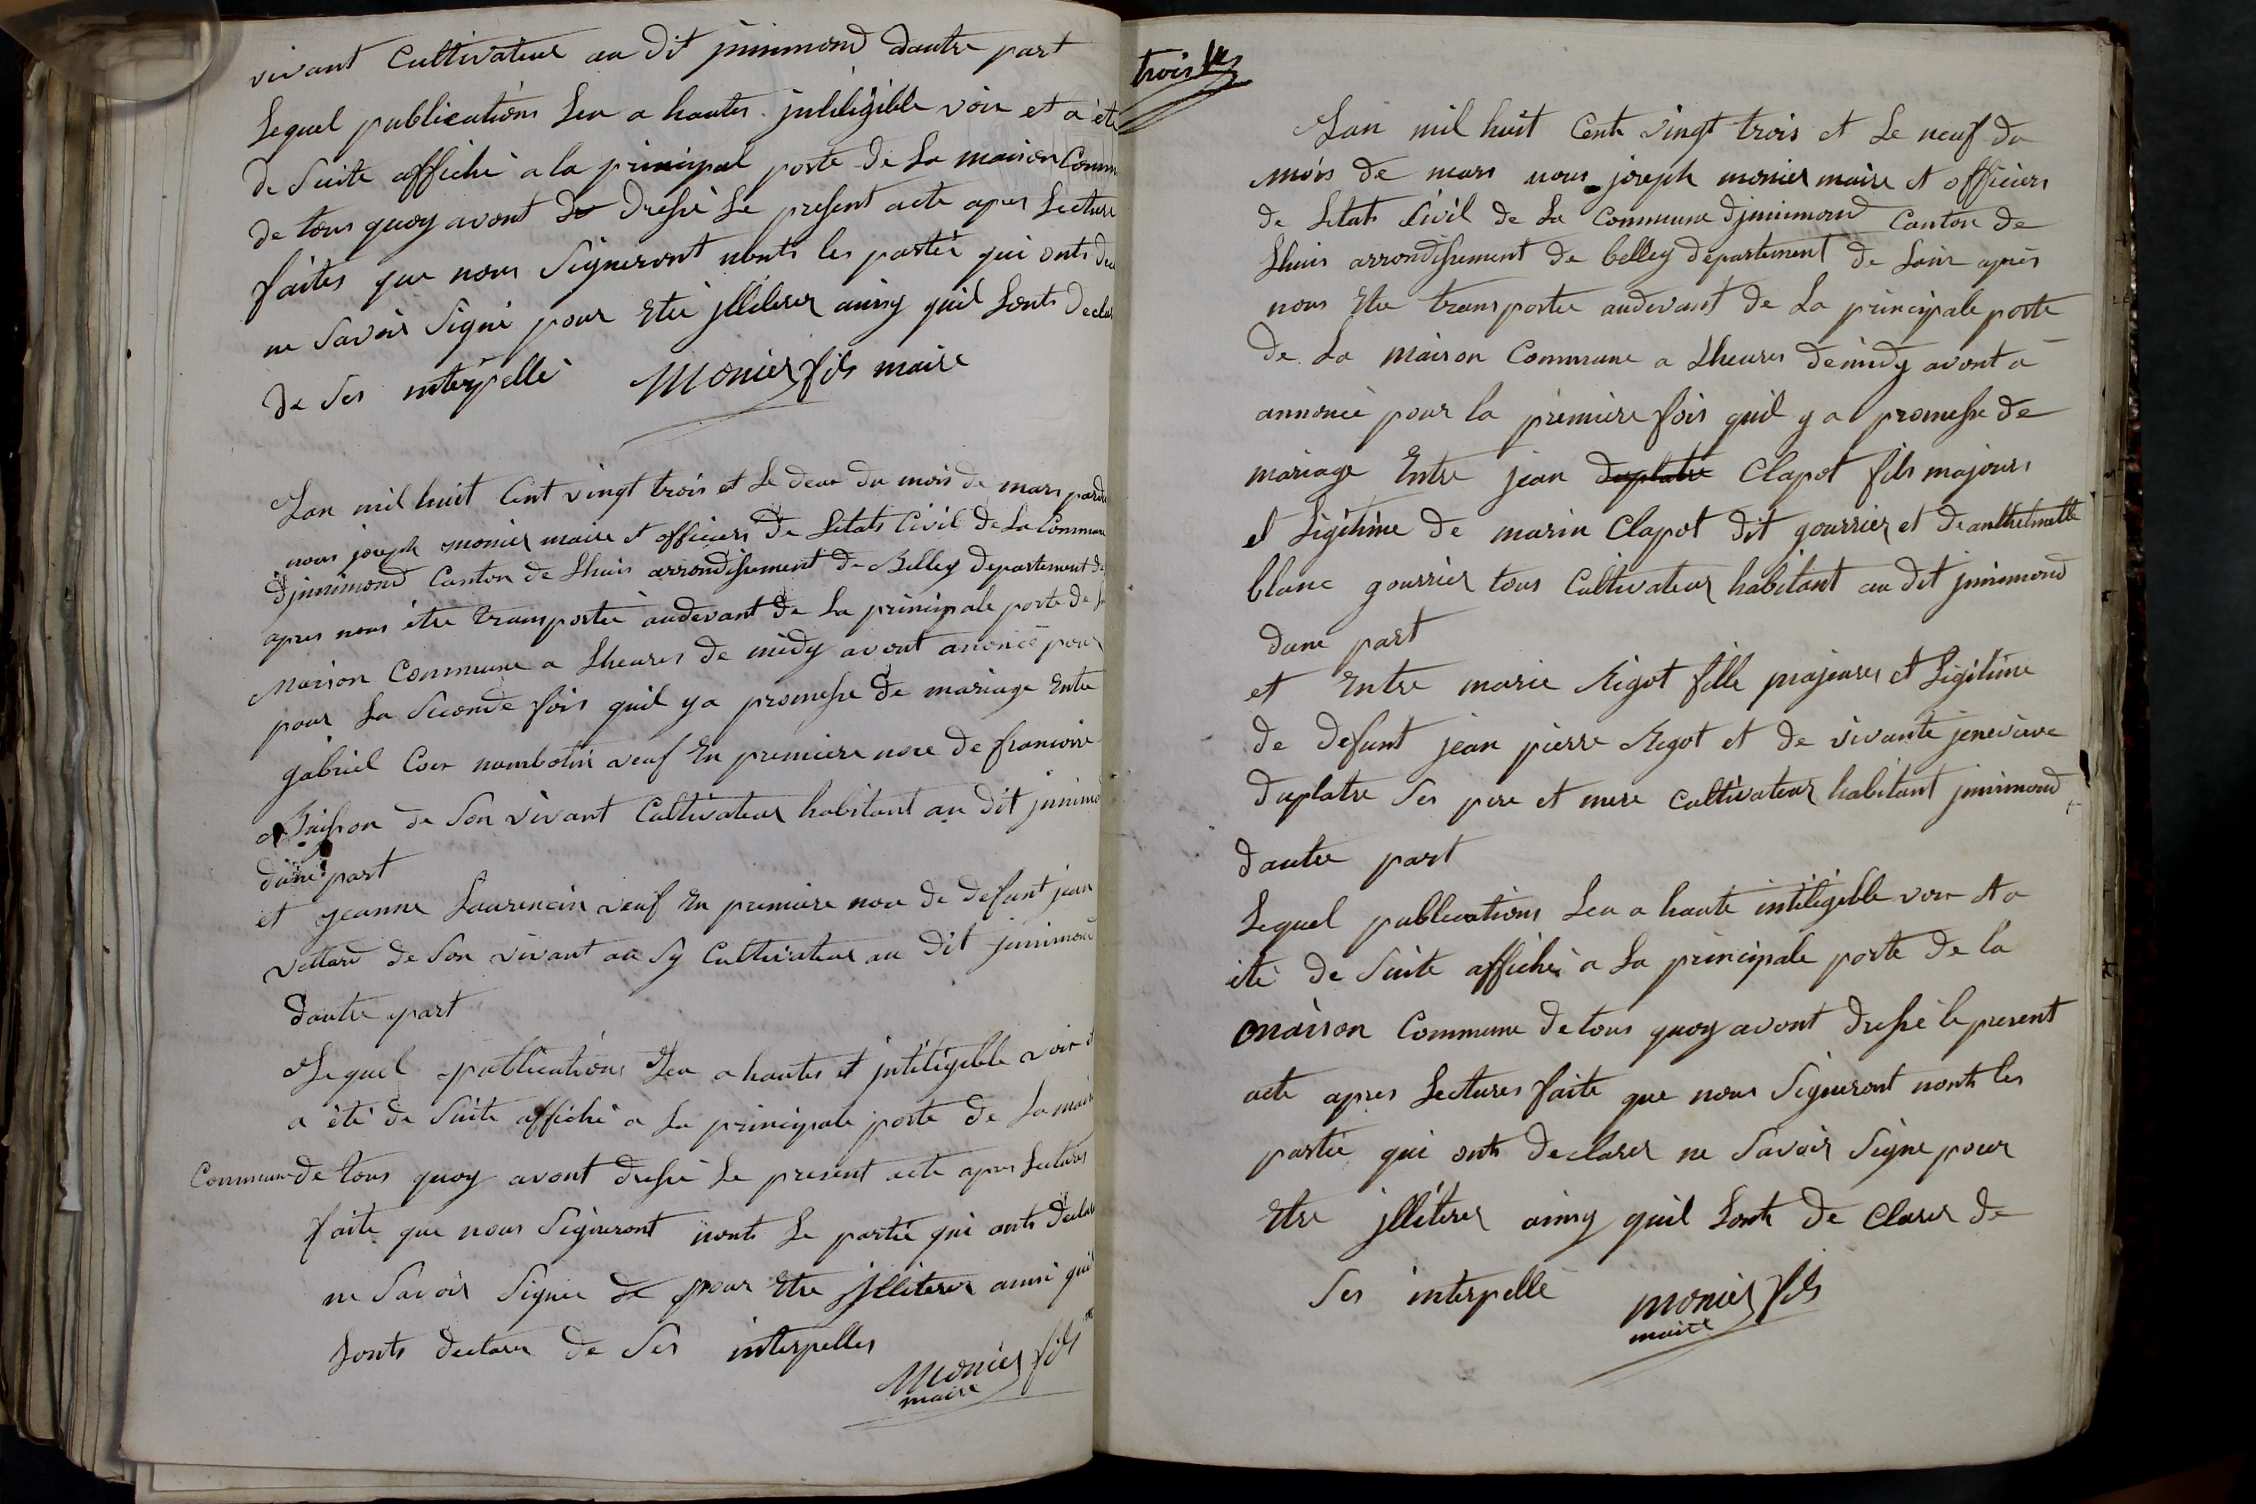 vivant Cultivateur au dit jnnimond dautre part
Lequel publications Leu a hautes jnteligible voix et a été
de Suite affiché a la principal porte de La maison Comm
de tous quoy avont dressé Le present acte apres Lecture
faites que nous Signeront nonts les partie qui onts
ne Savoir Signé pour Etre jlliterer ainsy quil Lonts Decla
de Ses interpellé Monier fils maire
Lan mil huit Cent vingt trois et Le deux du mois de mars
nous joseph monier maire et officiers de Letats Civil de La Commune
djnnimond Canton de Lhuis arrondissement de Belley departement de
apres nous être transportée audevant de La principale porte de La
Maison Commune a Lheures de midy avont anoncé pour
pour La Seconde fois quil ya promesse de mariage Entre
gabriel Coux veuf En premiere noce de
de Son vivant Cultivateur habitant au dit jnnimo
dune part
et jeanne Laurencin veuf En premiere noce de defunt jean
de Son vivant au Sy Cultivateur au dit jnnimond
dautre part
Lequel publications Leu a hautes et jnteligible voix et
a été de Suite affiché a La principale porte de La mais
Commune de tous quoy avont dressé Le present acte apres Lectures
faite que nous Signeront nonts Le partie qui onts decla
ne Savoir Signer de pour Etre jlliterer ainsi qui
Lonts declarer de Ses interpelles
Monier fils
maire
trois
Lan mil huit Cents vingt trois et Le neuf du
mois de mars nous joseph monier maire et officiers
de Letats Civil de La Commune djnnimond Canton de
Lhuis arrondissement de belley departement de Lain après
nous Etre transportee audevant de La principale porte
de La maison Commune a Lheures de midy avont a
annoncé pour la première fois quil y a promesse de
mariage Entre jean duplatre Clapot fils majours
et Ligitime de marin Clapot dit gourrier et de anthelmette
blanc gourrier tous Cultivateur habitant au dit jnnimond
dune part
et Entre marie Rigot fille majeures et Ligitime
de defunt jean pierre Rigot et de vivante jenevieve
duplatre Ses pere et mere Cultivateur habitant jnnimond
dautre part
Lequel publications Leu a haute intiligible voix et a
été de Suite affiché a La principale porte de la
maison Commune de tous quoy avont dressé le present
acte apres Lectures faite que nous Signeront nonts les
partie qui onts declarer ne Savoir Signe pour
Etre jlliterer ainsy quil Lonts de Clarer de
Ses interpellé monier fils
maire